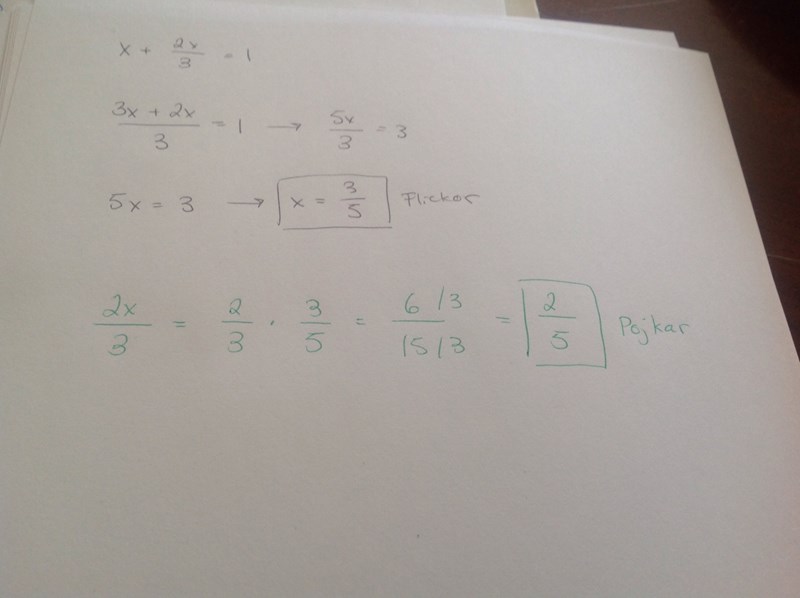 x + 2x/3 = 1
3x + 2x/3 = 1 → 5x/3 = 3
5x = 3 → x = 3/5 Flickor
2x/3 = 2/3 · 3/5 = 6/3/15/3 = 2/5 Pojkar